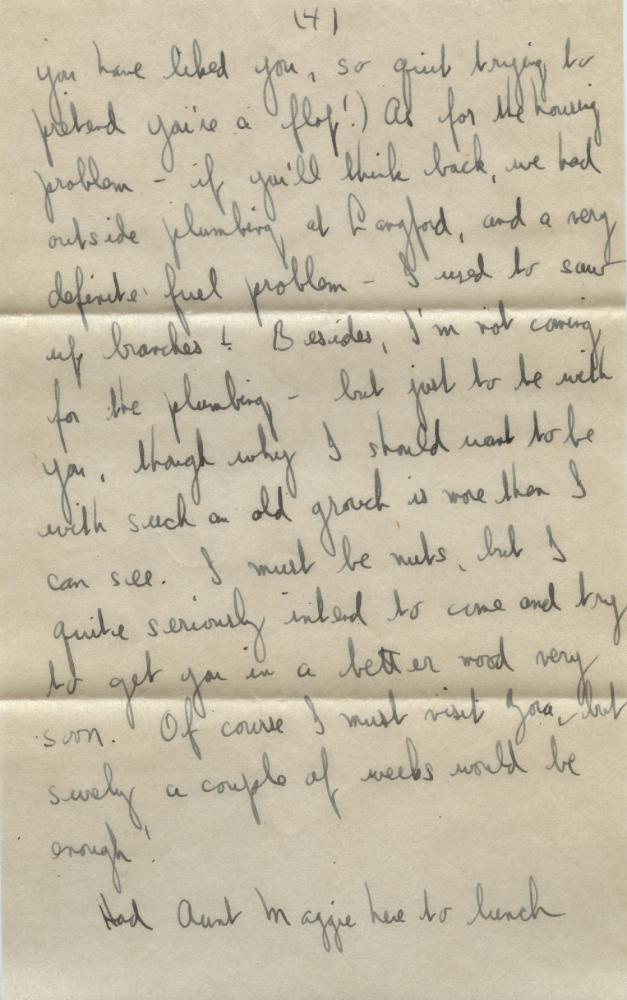 (4)
you have liked you, so quit trying to
pretend you're a flop!) As for the housing
problem - if you'll think back, we had
outside plumbing at Langford, and a very
definite fuel problem - I used to saw
up branches! Besides, I'm not coming
for the plumbing - but just to be with
you, though why I should want to be
with such an old grouch is more than I
can see. I must be nuts, but I
quite seriously intend to come and try
to get you in a better mood very
soon. Of course I must visit Zora, but
surely a couple of weeks would be
enough!
Had Aunt Maggie here to lunch